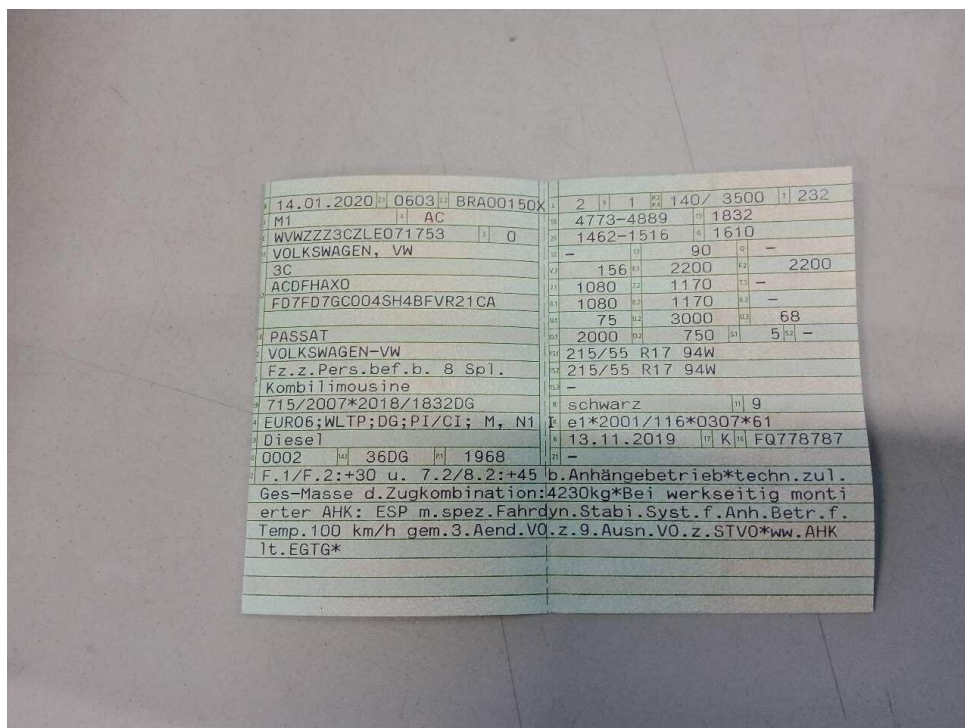 14.01.2020 0603 BRA00150X
M1 AC
WVWZZZ3CZLE071753 0
VOLKSWAGEN, VW
3C
ACDFHAX0
FD7FD7GC004SH4BFVR21CA
PASSAT
VOLKSWAGEN-VW
Fz.z.Pers.bef.b. 8 Spl.
Kombilimousine
715/2007*2018/1832DG
EURO6;WLTP;DG;PI/CI; M, N1 I
Diesel
0002 36DG 1968
2 1 140/ 3500 232
4773-4889 1832
1462-1516 1610
– 90 –
156 2200 2200
1080 1170 –
1080 1170 –
75 3000 68
2000 750 5 –
215/55 R17 94W
215/55 R17 94W
–
schwarz 9
e1*2001/116*0307*61
13.11.2019 K FQ778787
–
F.1/F.2:+30 u. 7.2/8.2:+45 b.Anhängebetrieb*techn.zul.
Ges-Masse d.Zugkombination:4230kg*Bei werkseitig monti
erter AHK: ESP m.spez.Fahrdyn.Stabi.Syst.f.Anh.Betr.f.
Temp.100 km/h gem.3.Aend.VO.z.9.Ausn.VO.z.STVO*ww.AHK
lt.EGTG*